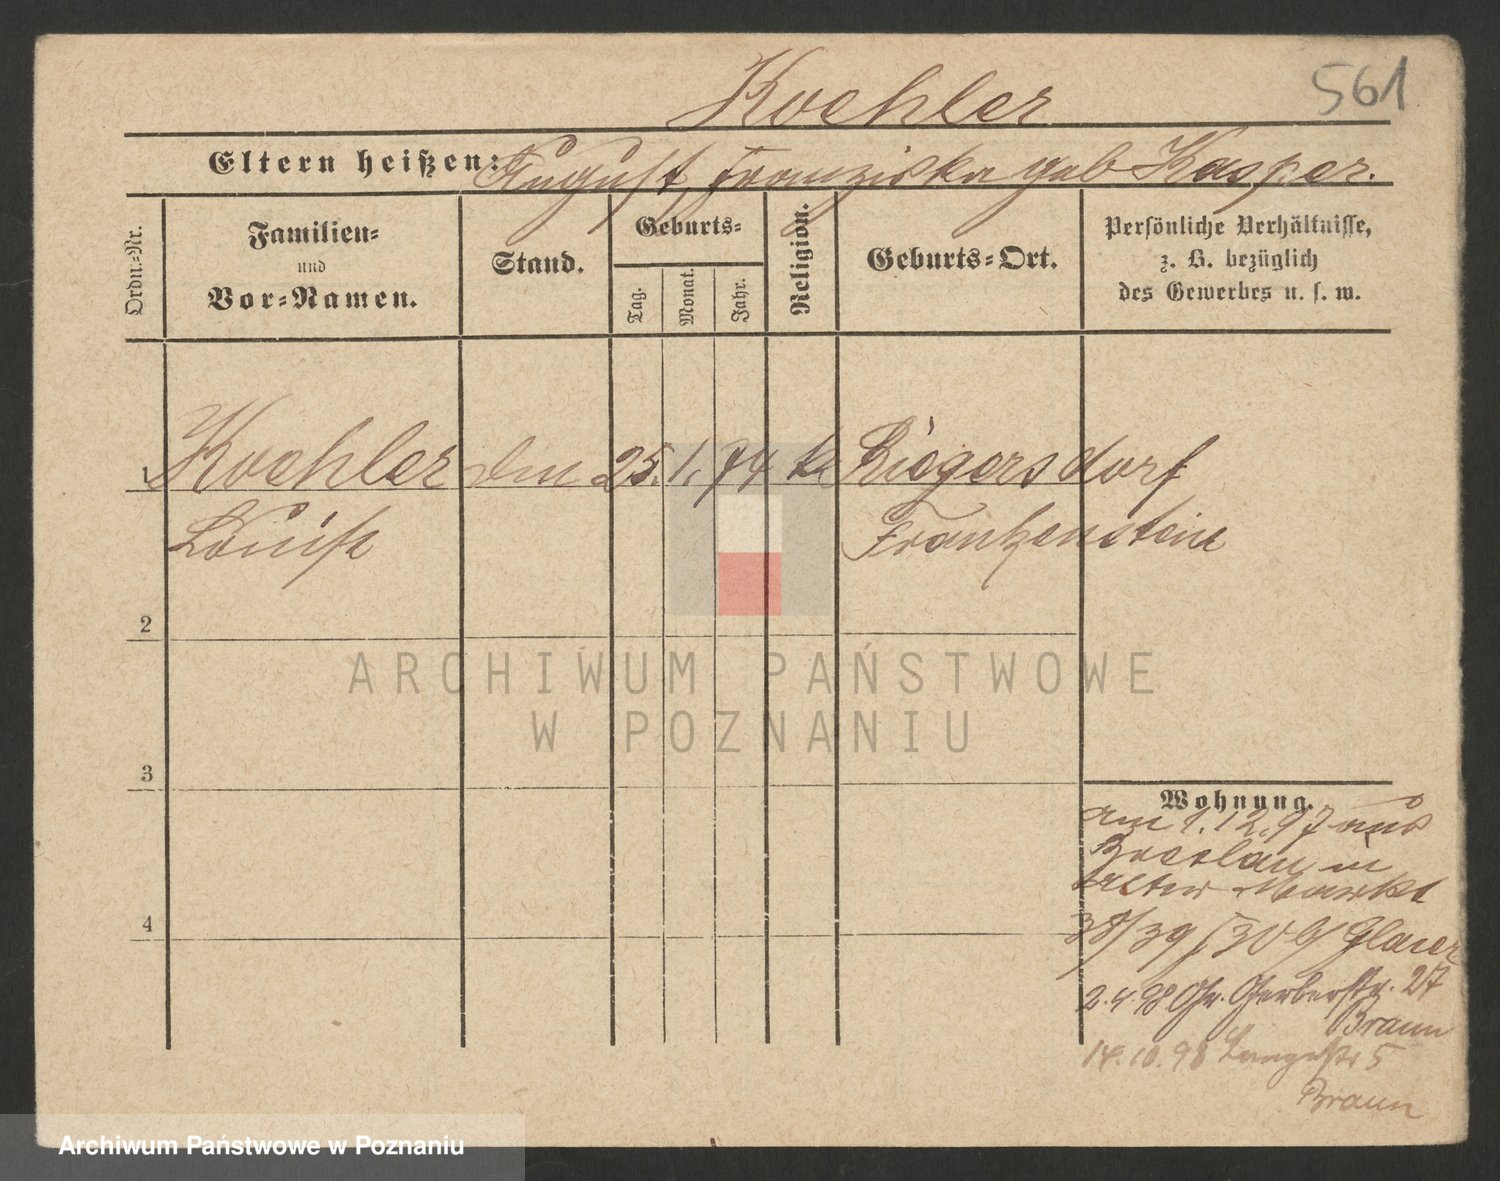 Koehler
561
Eltern heißen: August, Franziska geb Kasper.
Ordn.-Nr.
Familien-
und
Vor-Namen.
Stand.
Geburts-
Tag.
Monat.
Jahr.
Religion.
Geburts-Ort.
Persönliche Verhältnisse,
z. B. bezüglich
des Gewerbes u. s. w.
1 Koehler 25. 1. 74 k. Riegersdorf
Louise Frankenstein
2
3
4
ARCHIWUM PAŃSTWOWE
W POZNANIU
Wohnung.
am 1.12.97 aus
Breslau in
Alter Markt
38/39
2.4.98 Gr. Gerberstr. 27
Braun
14.10.98 Langestr 5
Braun
Archiwum Państwowe w Poznaniu